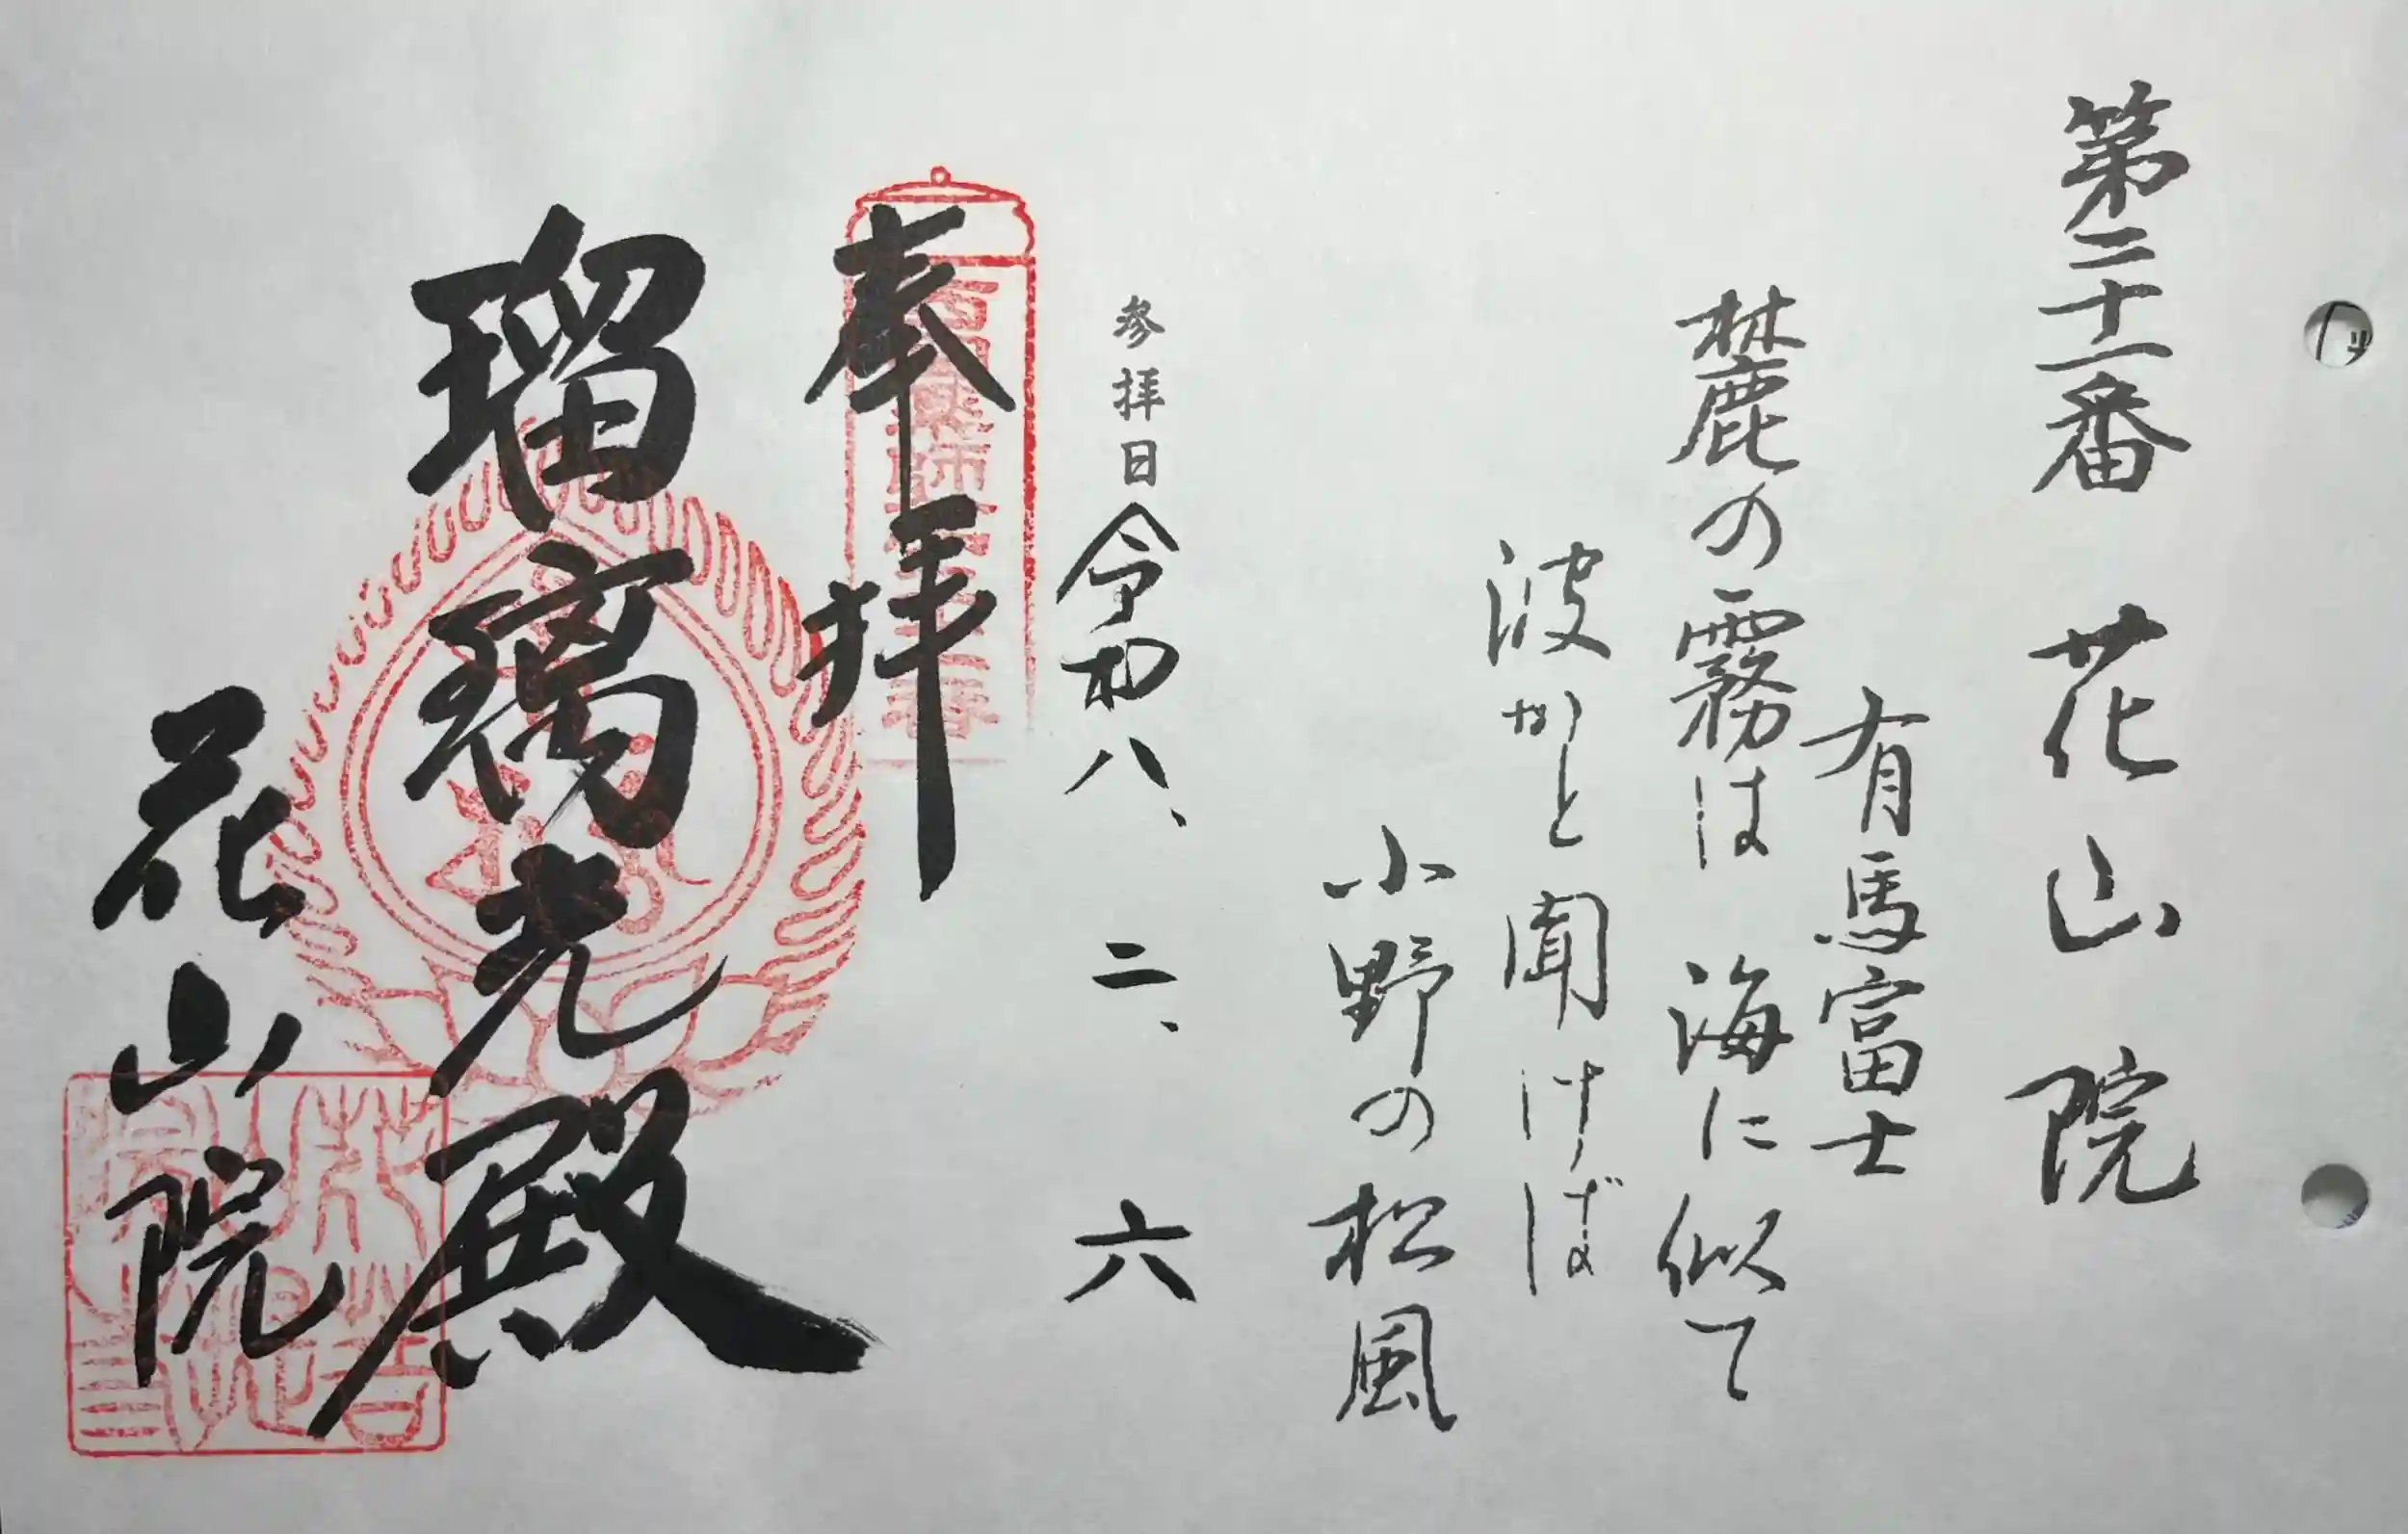 第二十一番 花山院
有馬富士
麓の霧は 海に似て
波かと聞けば
小野の松風
参拝日 令和八、二、六
奉拝
瑠璃光殿
花山院